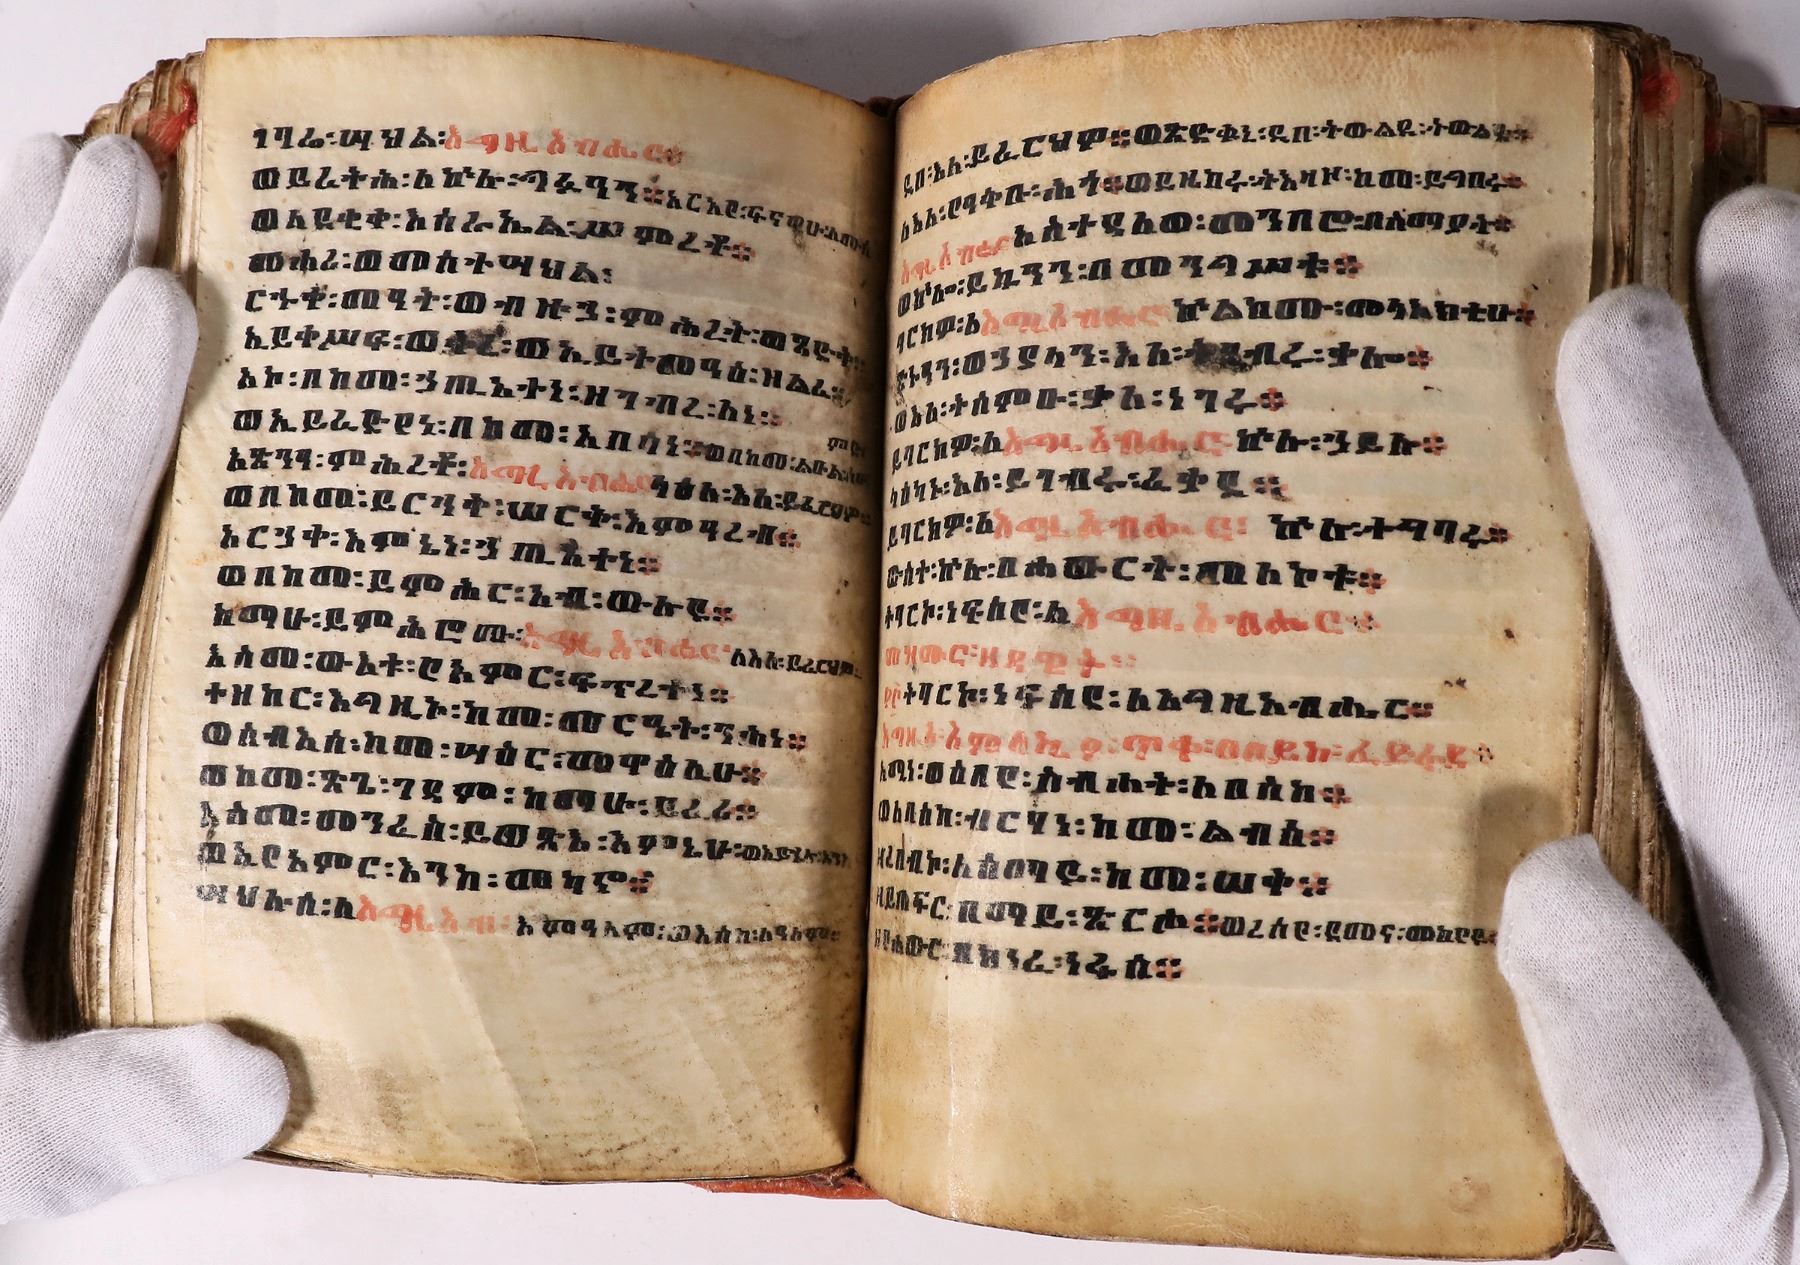 ገባሬ፡ሣህል፡እግዚአብሔር።
ወይፈትሕ፡ለኵሉ፡ግፉዓን። አርአየ፡ፍናዊሁ፡ለሙሴ
ወለደቂቀ፡እስራኤል፡ሥምረቶ።
መሐሪ፡ወመስተሣህል፡
ርኁቀ፡መዓት፡ወብዙኃ፡ምሕረት፡ወጻድቅ።
ኢይቀሥፍ፡ወትረ፡ወኢይትመዓዕ፡ዘልፈ።
አኮ፡በከመ፡ኃጢአትነ፡ዘገብረ፡ለነ።
ወኢይፈድየነ፡በከመ፡አበሳነ። ወበከመ፡ልዑል፡ሰማይ፡
አጽንዓ፡ምሕረቶ፡እግዚአብሔር፡ላዕለ፡እለ፡ይፈርህዎ።
ወበከመ፡ይርኅቅ፡ሠርቅ፡እምዓረብ።
አርኃቀ፡እምኔነ፡ኃጢአተነ።
ወበከመ፡ይምሕር፡አብ፡ውሉዶ።
ከማሁ፡ይምሕሮሙ፡እግዚአብሔር፡ለእለ፡ይፈርህዎ።
እስመ፡ውእቱ፡የአምር፡ፍጥረተነ።
ተዘከር፡እግዚኦ፡ከመ፡መሬት፡ንሕነ።
ወሰብእሰ፡ከመ፡ሣዕር፡መዋዕሊሁ።
ወከመ፡ጽጌ፡ገዳም፡ከማሁ፡ይፈሪ።
እስመ፡መንፈስ፡ይወጽእ፡እምኔሁ፡ወኢይሄሉ፡እንከ
ወኢየአምር፡እንከ፡መካኖ።
ሣህሉሰ፡ለእግዚአብ፡እምዓለም፡ወእስከ፡ለዓለም።
ዲበ፡እለ፡ይፈርህዎ። ወጽድቁኒ፡ዲበ፡ትውልደ፡ትውልድ።
ለእለ፡የዓቅቡ፡ሕጎ። ወይዘከሩ፡ትእዛዞ፡ከመ፡ይግበሩ።
እግዚአብሔር፡አስተዳለወ፡መንበሮ፡በሰማያት።
ወኵሎ፡ይኴንን፡በመንግሥቱ።
ባርክዎ፡ለእግዚአብሔር፡ኵልክሙ፡መላእክቲሁ።
ጽኑዓን፡ወኃያላን፡እለ፡ትገብሩ፡ቃሎ።
ወእለ፡ተሰምዑ፡ቃለ፡ነገሩ።
ይባርክዎ፡ለእግዚአብሔር፡ኵሉ፡ኃይሉ።
ላእካኑ፡እለ፡ይገብሩ፡ፈቃዶ።
ይባርክዎ፡ለእግዚአብሔር፡ ኵሉ፡ተግባሩ።
ውስተ፡ኵሉ፡በሐውርት፡መለኮቱ።
ተባርኮ፡ነፍስየ፡ለእግዚአብሔር።
መዝሙር፡ዘዳዊት።
ተባርኮ፡ነፍስየ፡ለእግዚአብሔር።
እግዚኦ፡አምላኪየ፡ጥቀ፡ዐበይከ፡ፈድፋደ።
አሚነ፡ወሰናየ፡ስብሐተ፡ለበስከ።
ወለበስከ፡ብርሃነ፡ከመ፡ልብስ።
ዘረበቦ፡ለሰማይ፡ከመ፡ሠቅ።
ዘይጠፍር፡በማይ፡ጽርሖ። ወረሰየ፡ደመና፡መከየዶ
ዘየሐውር፡በክንፈ፡ነፋስ።